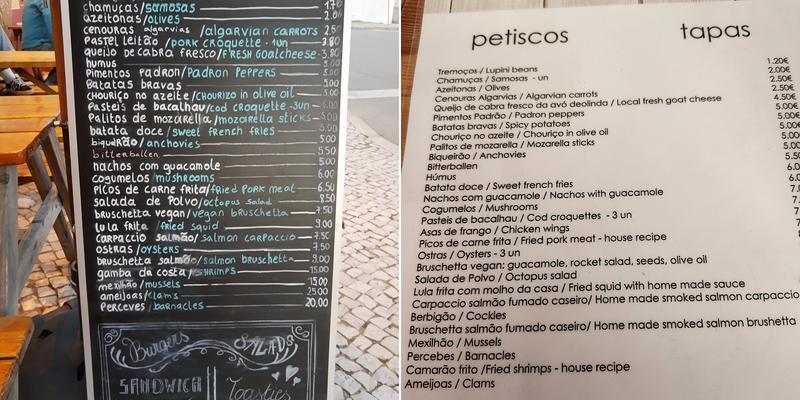 chamuças/samosas 1.70
azeitonas/olives
cenouras algarvias /algarvian carrots 2.50
Pastel leitão /pork croquette 1un 3.80
queijo de cabra fresco/Fresh goatcheese 3.80
humus
Pimentos Padron/Padron Peppers
Batatas bravas 5.00
chouriço no azeite/chourizo in olive oil
Pasteis de bacalhau/cod croquette 3un
Palitos de mozarella/mozzarella sticks 5.00
batata doce/sweet french fries
biqueirão/anchovies
bitterballen
nachos com guacamole
cogumelos/mushrooms 6.00
Picos de carne frita/fried pork meat 6.50
salada de Polvo/octopus salad 8.50
bruschetta vegan/vegan bruschetta 7.50
lula frita/fried squid 9.00
carpaccio salmão/salmon carpaccio 7.50
ostras/oysters 7.50
bruschetta salmão/salmon bruschetta 9.00
gamba da costa/shrimps 15.00
mexilhão/mussels 15.00
ameijoas/clams
Perceves/barnacles 20.00
Burgers SALADS
SANDWICH Toasties
petiscos tapas
Tremoços / Lupini beans 1.20€
Chamuças / Samosas - un 2.00€
Azeitonas / Olives 2.50€
Cenouras Algarvias / Algarvian carrots 2.50€
Queijo de cabra fresco da avó deolinda / Local fresh goat cheese 4.50€
Pimentos Padrão / Padron peppers 5.00€
Batatas bravas / Spicy potatoes 5.00€
Chouriço no azeite / Chouriço in olive oil
Palitos de mozarella / Mozarella sticks
Biqueirão / Anchovies
Bitterballen
Húmus
Batata doce / Sweet french fries
Nachos com guacamole / Nachos with guacamole
Cogumelos / Mushrooms
Pasteis de bacalhau / Cod croquettes - 3 un
Asas de frango / Chicken wings
Picos de carne frita / Fried pork meat - house recipe
Ostras / Oysters - 3 un
Bruschetta vegan: guacamole, rocket salad, seeds, olive oil
Salada de Polvo / Octopus salad
Lula frita com molho da casa / Fried squid with home made sauce
Carpaccio salmão fumado caseiro/ Home made smoked salmon carpaccio
Berbigão / Cockles
Bruschetta salmão fumado caseiro/ Home made smoked salmon brushetta
Mexilhão / Mussels
Percebes / Barnacles
Camarão frito /Fried shrimps - house recipe
Ameijoas / Clams